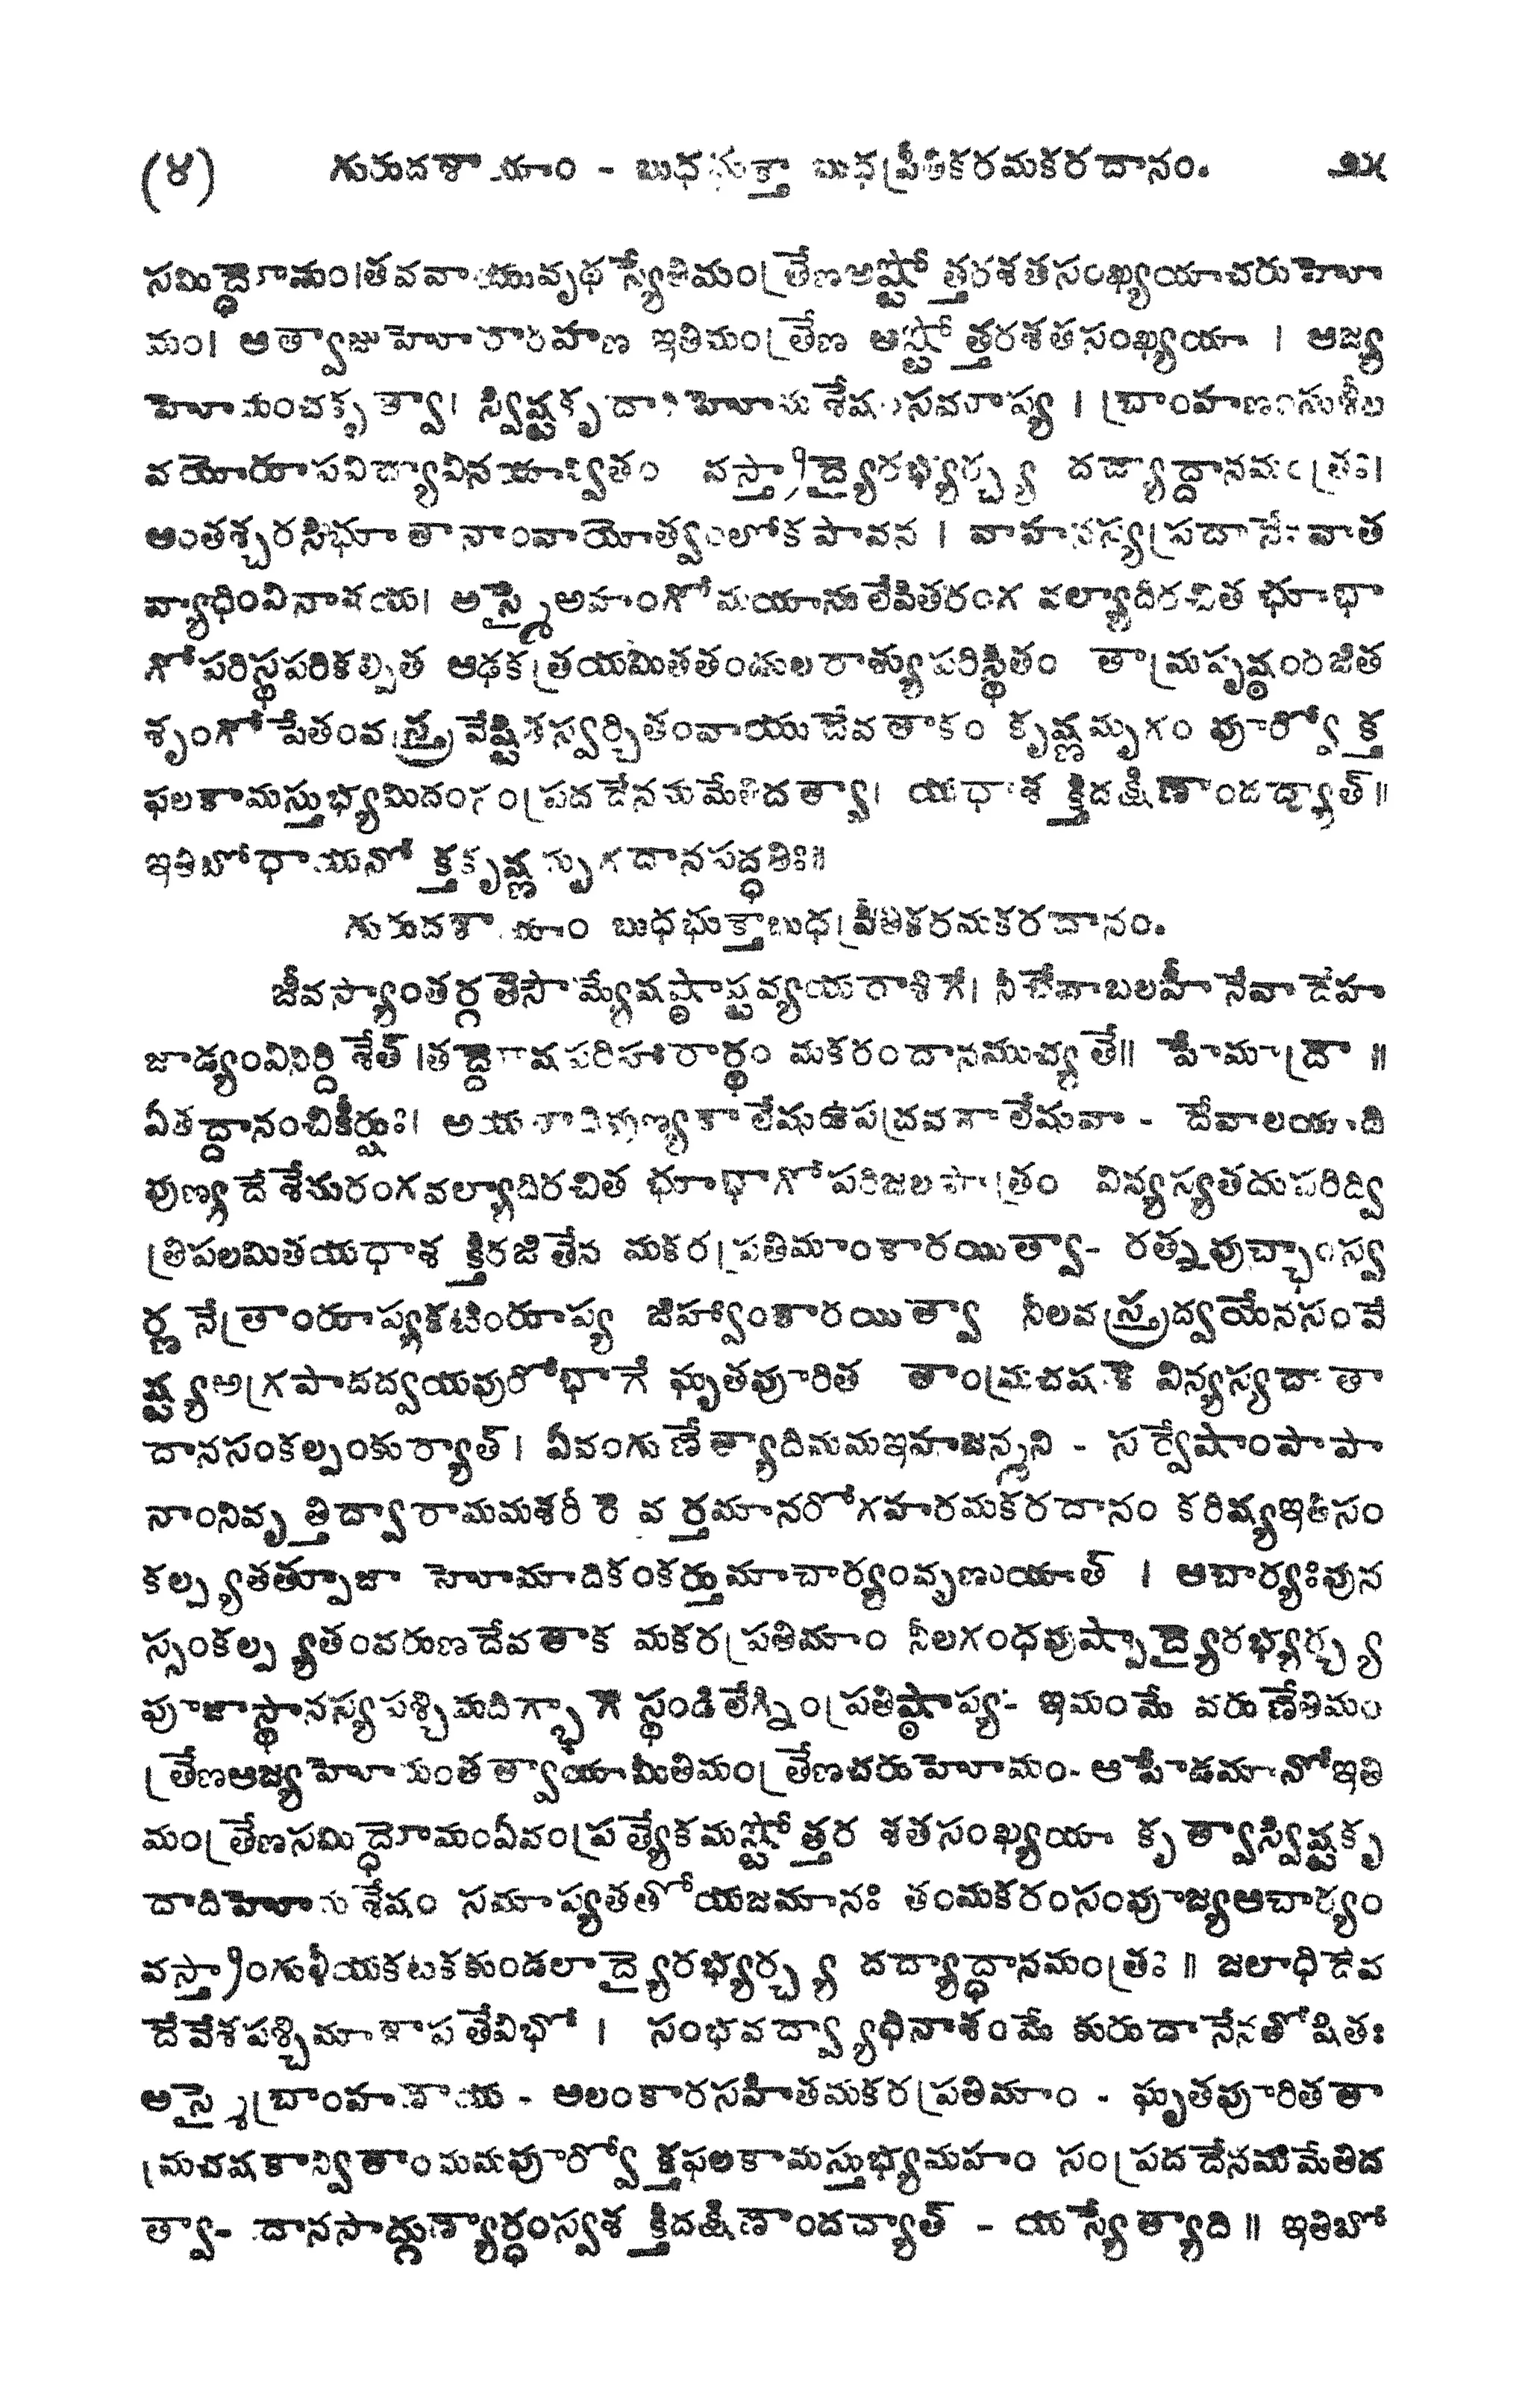 (౪) గురుదశాయాం - బుధభుక్తా బుధప్రీతికరమకరదానం. ౨౫
సమిద్ధోమం।తవవాయువృథస్యేతిమంత్రేణఅష్టోత్తరశతసంఖ్యయాచరుహో
మం। ఆత్వాజుహో ఇతిమంత్రేణ అష్టోత్తరశతసంఖ్యయా । ఆజ్య
హోమంచకృత్వా। స్విష్టకృదాదిహోమశేషంసమాప్య । బ్రాంహణంసుశీల
వయోరూపవిద్యావినయాన్వితం వస్త్రాద్యైరభ్యర్చ్య దద్యాద్దానమంత్రః।
అంతశ్చరసిభూతానాంవాయోత్వంలోకపావన । వాహనస్యప్రదానేనవాత
వ్యాధింవినాశయ। అస్మైఅహంగోమయానులేపితరంగ వల్యాదిరచిత భూభా
గోపరిస్థపరికల్పిత ఆఢకత్రయమితతండులరాశ్యుపరిస్థితం తామ్రపృష్ఠంరజిత
శృంగోపేతంవస్త్రవేష్టితస్వర్చితంవాయుదేవతాకం కృష్ణమృగం పూర్వోక్త
ఫలకామస్తుభ్యమిదంసంప్రదదేనమమేతిదత్వా। యధాశక్తిదక్షిణాందద్యాత్॥
ఇతిబోధాయనోక్తకృష్ణమృగదానపద్ధతిః॥
గురుదశాయాం బుధభుక్తాబుధప్రీతికరమకరదానం.
జీవస్యాంతర్గతెసౌమ్యేషష్ఠాష్టవ్యయరాశిగే। నీచేవాబలహీనేవాదేహ
జాడ్యంవినిర్దిశేత్।తద్దోషపరిహారార్థం మకరందానముచ్యతే॥ హేమాద్రౌ॥
ఏతద్దానంచికీర్షుః। అయనాదిపుణ్యకాలేషుఉపద్రవకాలేషువా - దేవాలయాది
పుణ్యదేశేషురంగవల్యాదిరచిత భూభాగోపరిజలపాత్రం విన్యస్యతదుపరిద్వి
త్రిపలమితయధాశక్తిరజితేన మకరప్రతిమాంకారయిత్వా- రత్నపుచ్ఛాంస్వ
ర్ణనేత్రాంరూప్యకటింరూప్య జిహ్వాంకారయిత్వా నీలవస్త్రద్వయేనసంవే
ష్ట్యఅగ్రపాదద్వయపురోభాగే ఘృతపూరిత తాంమ్రచషకె విన్యస్యదాతా
దానసంకల్పంకుర్యాత్। ఏవంగుణేత్యాదిమమఇహజన్మని - సర్వేషాంపాపా
నాంనివృత్తిద్వారామమశరీరె వర్తమానరోగహరమకరదానం కరిష్యఇతిసం
కల్ప్యతత్పూజా హోమాదికంకర్తుమాచార్యంవృణుయాత్ । ఆచార్యఃపున
స్సంకల్ప్యతంవరుణదేవతాక మకరప్రతిమాం నీలగంధపుష్పాద్యైరభ్యర్చ్య
పూజాస్థానస్యపశ్చిమదిగ్భాగె స్థండిలేగ్నింప్రతిష్ఠాప్య- ఇమంమే వరుణేతిమం
త్రేణఆజ్యహోమంతత్వాయామీతిమంత్రేణచరుహోమం- ఆహేడమానోఇతి
మంత్రేణసమిద్ధోమంఏవంప్రత్యేకమష్టోత్తర శతసంఖ్యయా కృత్వాస్విష్టకృ
దాదిహోమశేషం సమాప్యతతోయజమానః తంమకరంసంపూజ్యఆచార్యం
వస్త్రాంగుళీయకటకకుండలాద్యైరభ్యర్చ్య దద్యాద్ధానమంత్రః॥ జలాధిదేవ
దేవేశపశ్చిమాశాపతేవిభో । సంభవద్వ్యాధినాశంమే కురుదానేనతోషితః
అస్మైబ్రాంహణాయ - ఆలంకారసహితమకరప్రతిమాం - ఘృతపూరితతా
మ్రచషకాన్వితాంమమపూర్వోక్తఫలకామస్తుభ్యమహం సంప్రదదేనమమేతిద
త్వా- దానసాద్గుణ్యార్ధంస్వశక్తిదక్షిణాందద్యాత్ - యస్యేత్యాది॥ ఇతిబో